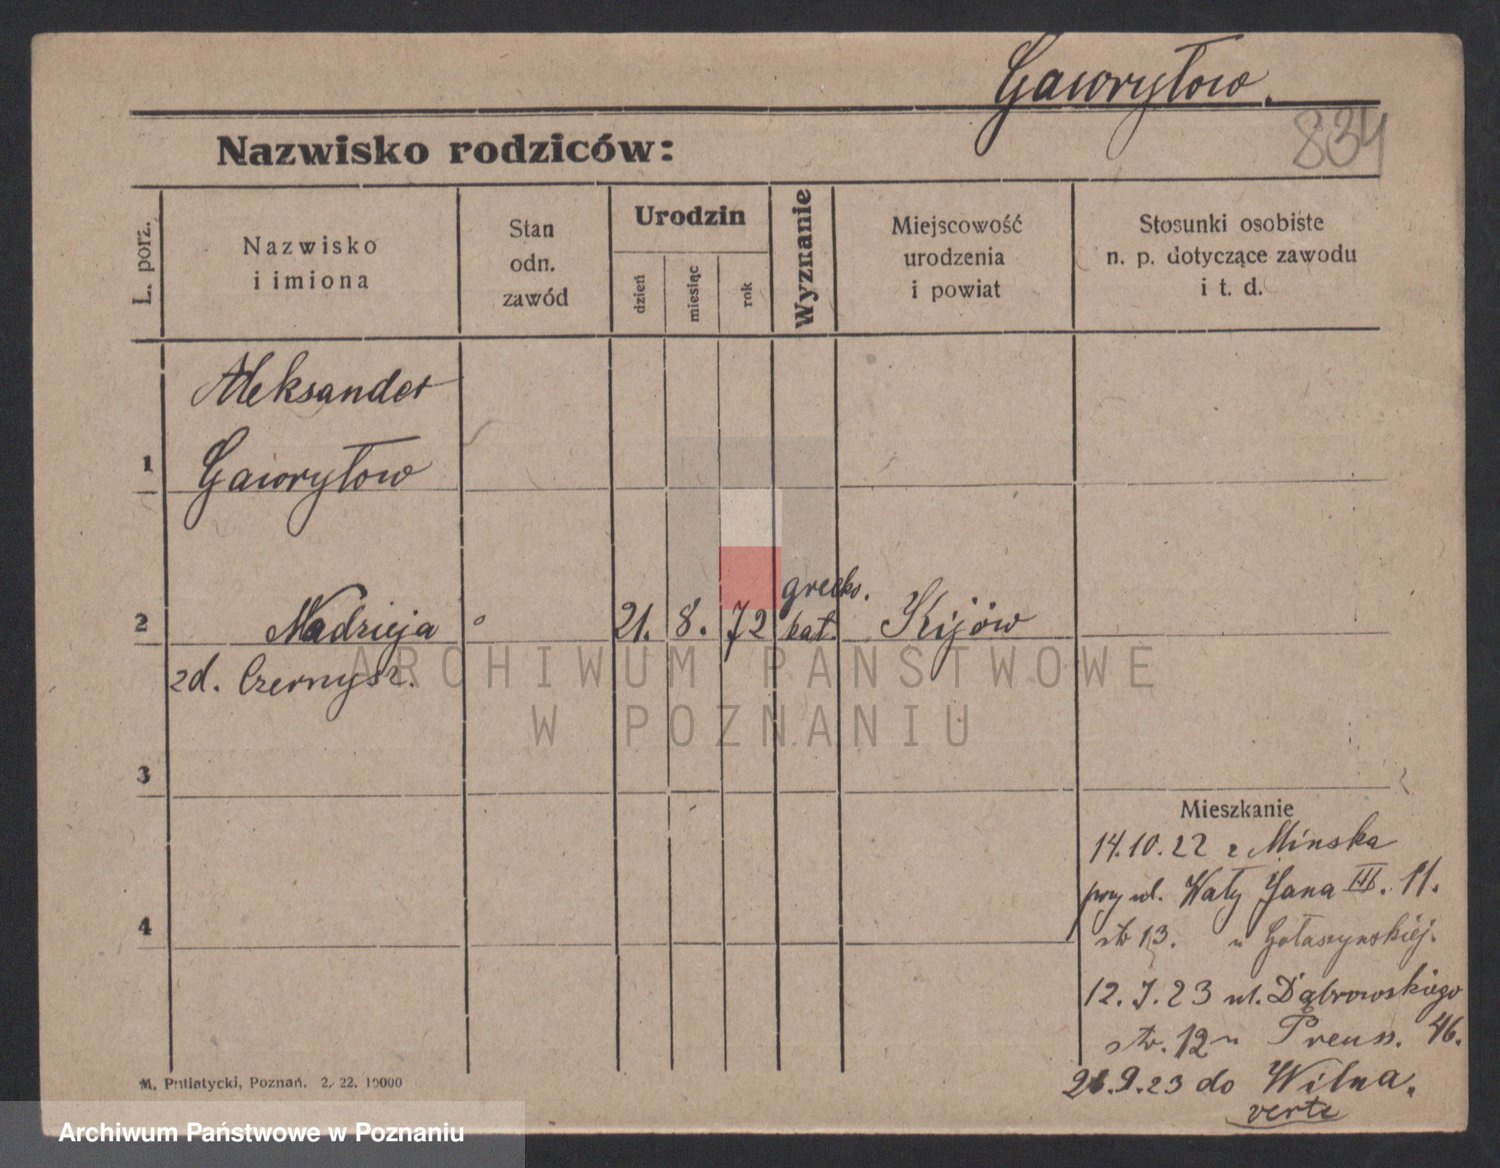 Gawryłow.
834
Nazwisko rodziców:
L. porz.
Nazwisko
i imiona
Stan
odn.
zawód
Urodzin
dzień
miesiąc
rok
Wyznanie
Miejscowość
urodzenia
i powiat
Stosunki osobiste
n. p. dotyczące zawodu
i t. d.
Aleksander
1 Gawryłow
2 Nadzieja 21. 8. 72 grecko. kat. Kijów
zd. Czernysz.
ARCHIWUM PAŃSTWOWE
W POZNANIU
3
Mieszkanie
14.10.22 z Mińska
przy ul. Wały Jana III. 11.
4
str 13. u Gołaszynskiej.
12.7.23 ul. Dąbrowskiego
str. 12 u Preuss. 46.
M. Putiatycki, Poznań. 2. 22. 10000
21.9.23 do Wilna.
verte
Archiwum Państwowe w Poznaniu